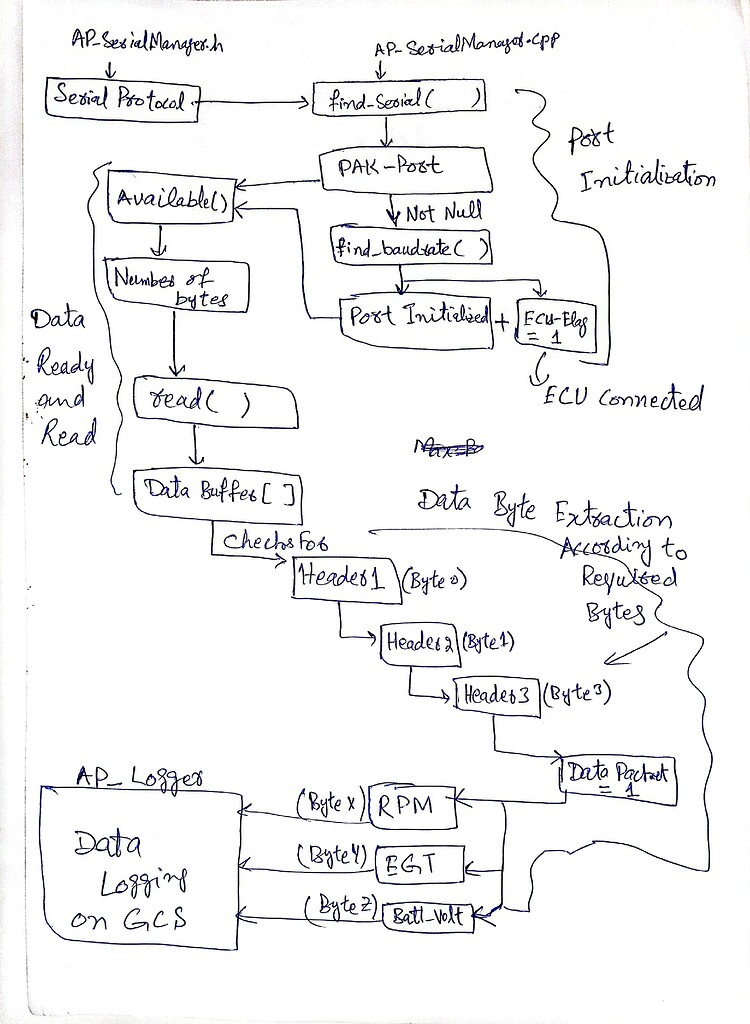 AP_SerialManager.h
AP_SerialManager.cpp
Serial Protocol
find_Serial( )
Port
Initialisation
PAK-Port
Available()
Not Null
find_baudrate( )
Number of
bytes
Port Initialized + ECU-Flag
= 1
Data
Ready
and
Read
ECU Connected
read( )
Data Buffer[ ]
Data Byte Extraction
According to
Required
Bytes
Checks For
Header1 (Byte 0)
Header2 (Byte1)
Header3 (Byte3)
Data Packet
= 1
AP_Logger
Data
Logging
on GCS
(Byte X) RPM
(Byte Y) EGT
(Byte Z) Batt_Volt